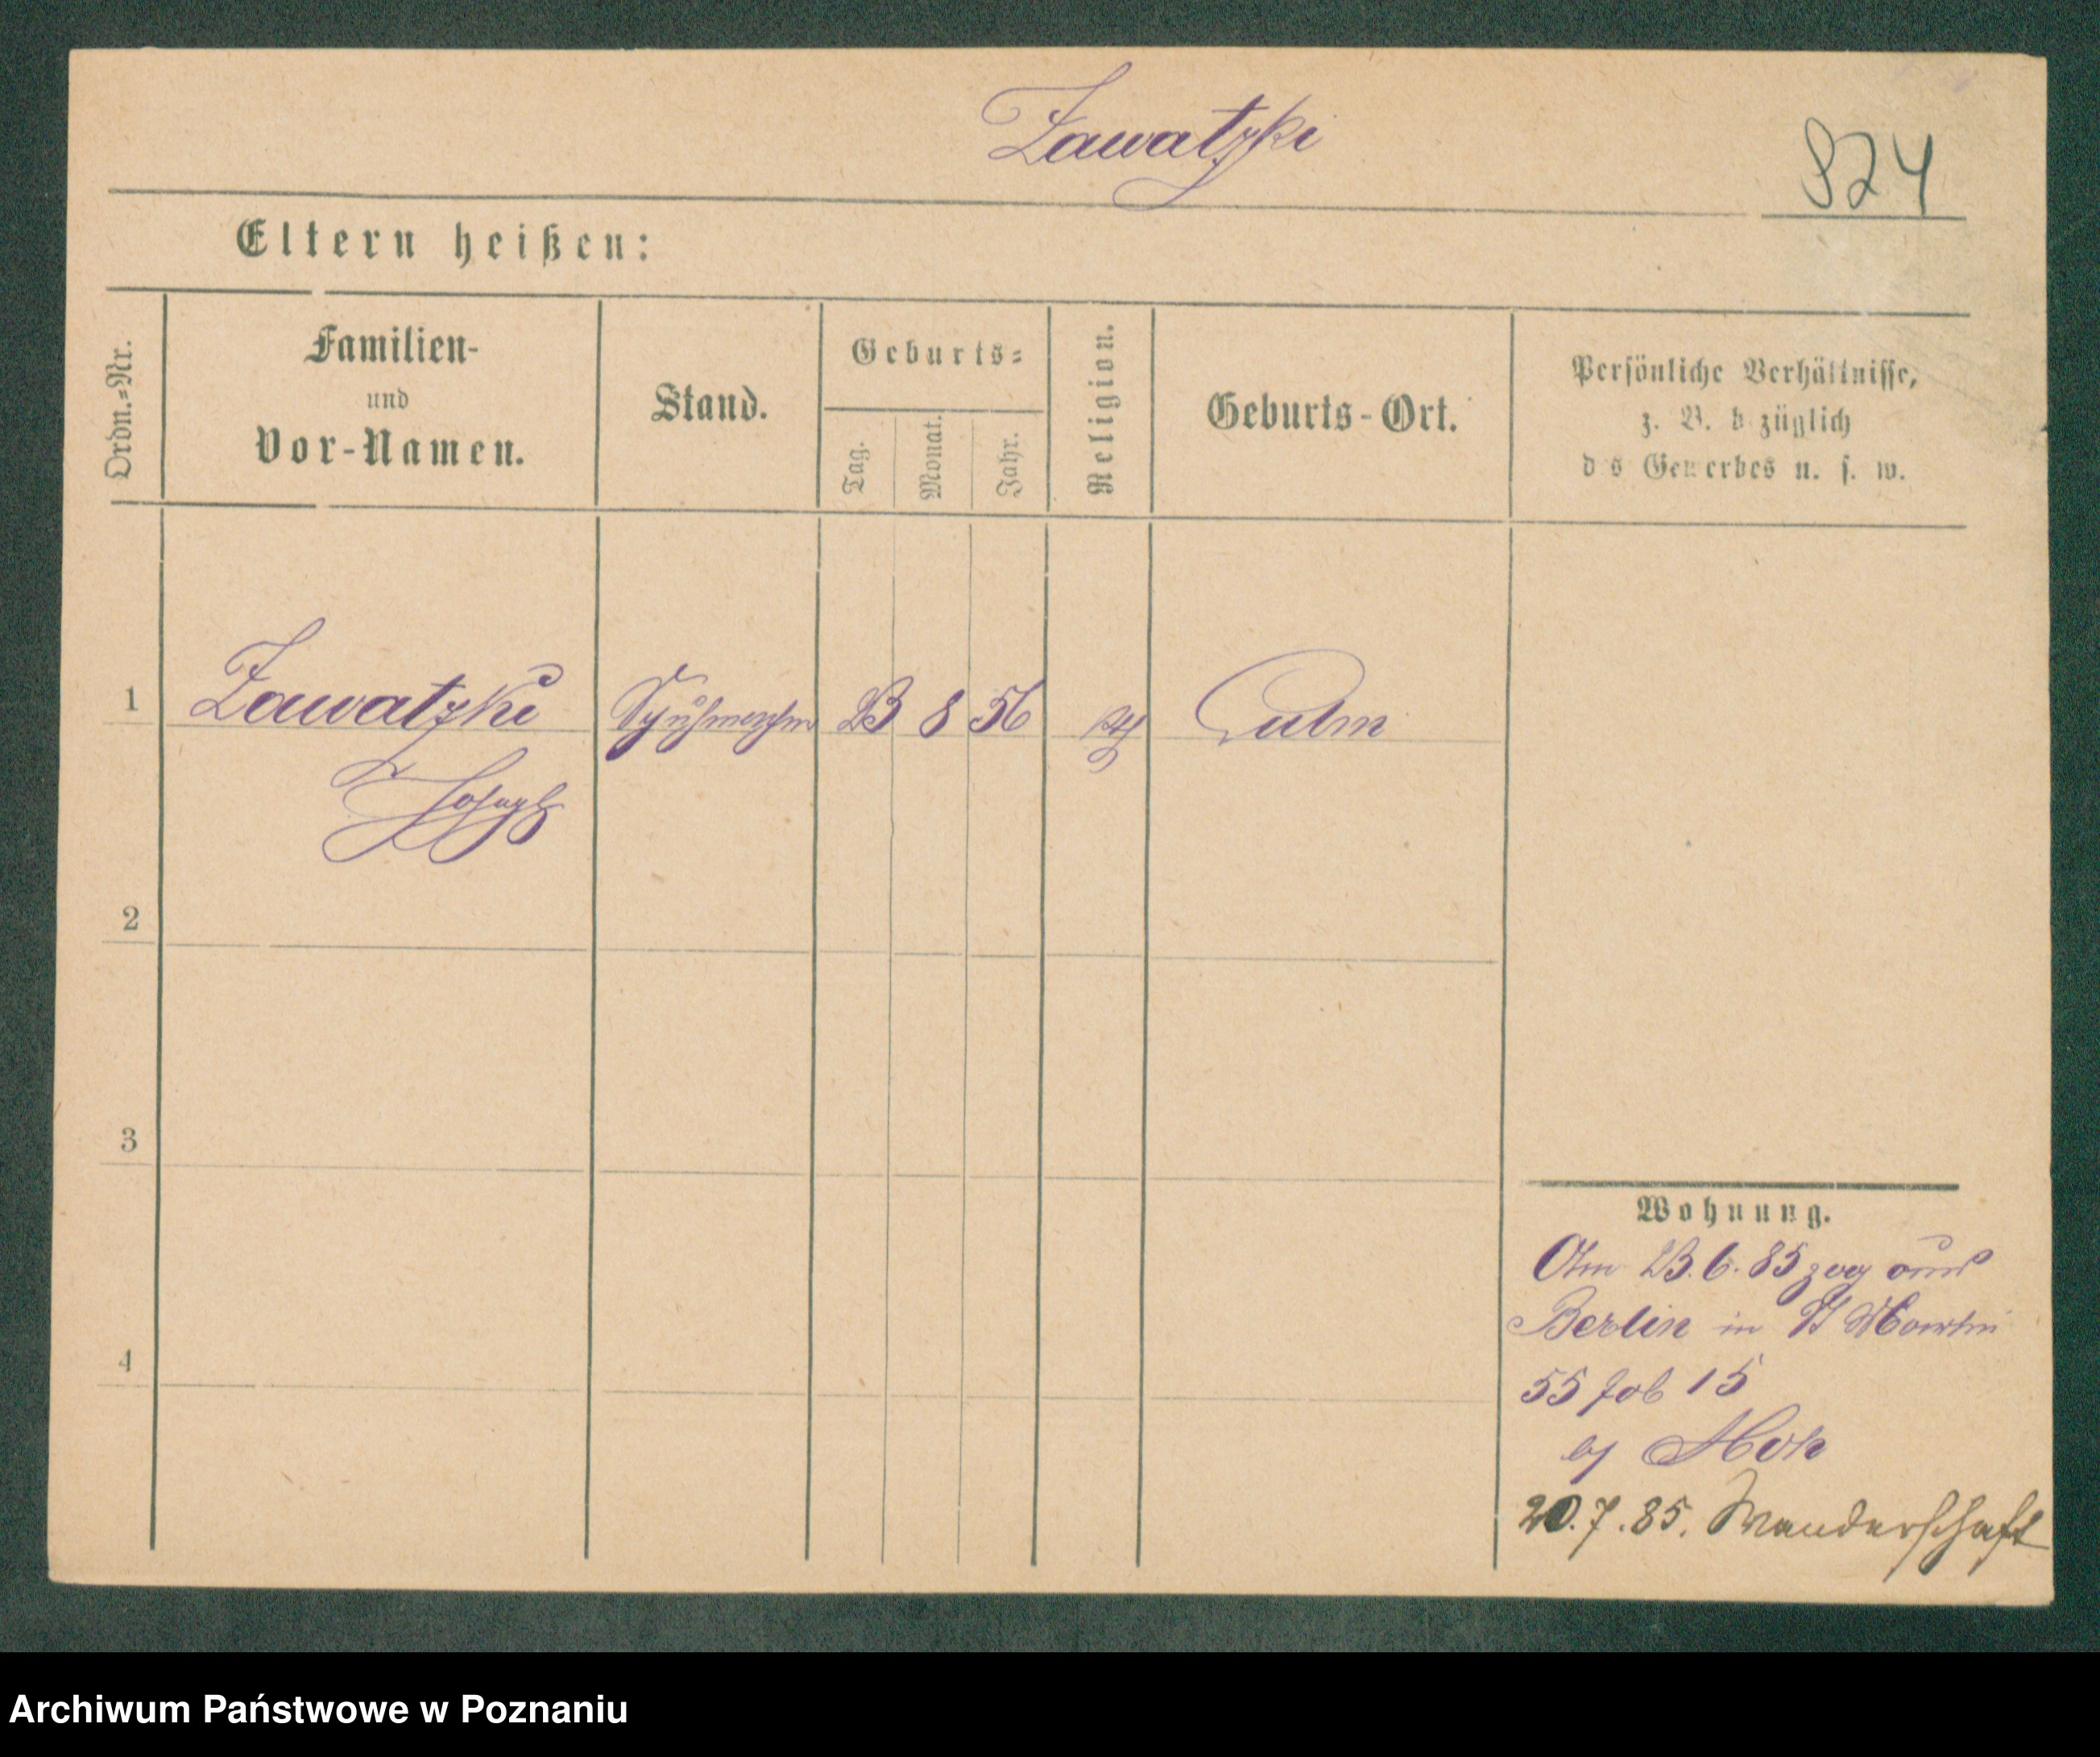 Zawatzki
824
Eltern heißen:
Ordn.-Nr.
Familien-
und
Vor-Namen.
Stand.
Geburts-
Tag.
Monat.
Jahr.
Religion.
Geburts-Ort.
Persönliche Verhältnisse,
z. B. b züglich
d s Gewerbes u. s. w.
1 Zawatzki 23 8 56 Culm
Joseph
2
3
4
Wohnung.
Am 23.6.85 zog aus
Berlin in St Martin
55 15
20.7.85. Wanderschaft
Archiwum Państwowe w Poznaniu